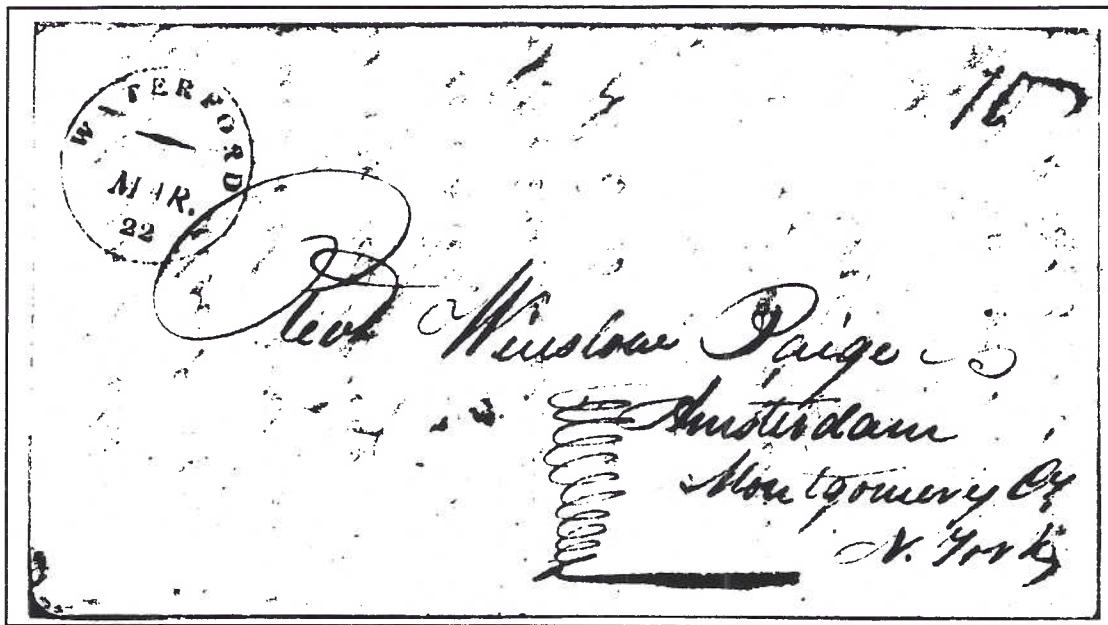 WATERFORD
MAR.
22
Revd Winslow Paige
Amsterdam
Montgomery Cy
N. York